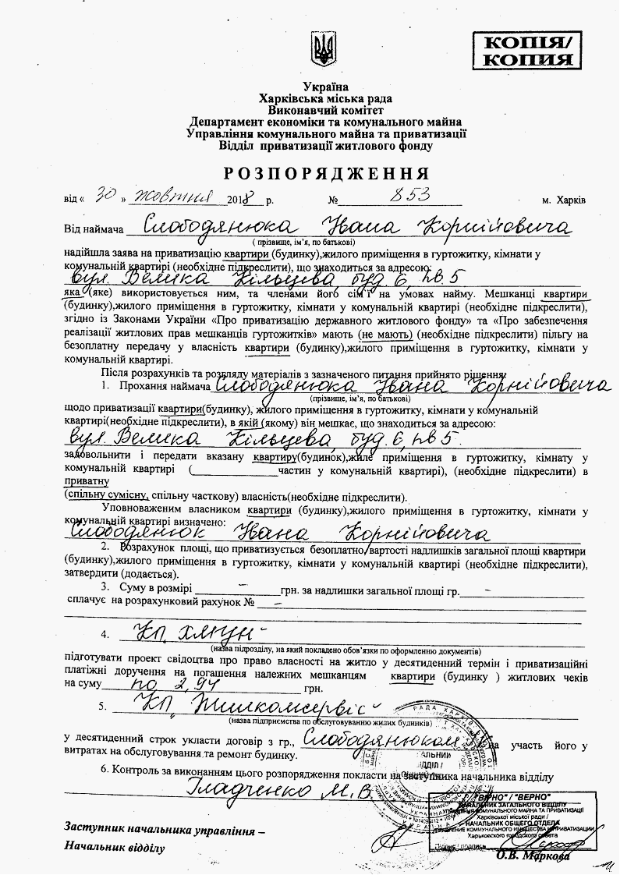 КОПІЯ/
КОПИЯ
Україна
Харківська міська рада
Виконавчий комітет
Департамент економіки та комунального майна
Управління комунального майна та приватизації
Відділ приватизації житлового фонду
РОЗПОРЯДЖЕННЯ
від « 30 » жовтня 2018 р. № 853 м. Харків
Від наймача Слободянюка Івана Корнійовича
( прізвище, ім’я, по батькові)
надійшла заява на приватизацію квартири (будинку),жилого приміщення в гуртожитку, кімнати у
комунальній квартирі (необхідне підкреслити), що знаходиться за адресою:
вул. Велика Кільцева, буд. 6, кв. 5
яка (яке) використовується ним, та членами його сім’ї на умовах найму. Мешканці квартири
(будинку),жилого приміщення в гуртожитку, кімнати у комунальній квартирі (необхідне підкреслити),
згідно із Законами України «Про приватизацію державного житлового фонду» та «Про забезпечення
реалізації житлових прав мешканців гуртожитків» мають (не мають) (необхідне підкреслити) пільгу на
безоплатну передачу у власність квартири (будинку),жилого приміщення в гуртожитку, кімнати у
комунальній квартирі.
Після розрахунків та розгляду матеріалів з зазначеного питання прийнято рішення:
1. Прохання наймача Слободянюка Івана Корнійовича
(прізвище, ім’я, по батькові)
щодо приватизації квартири(будинку), жилого приміщення в гуртожитку, кімнати у комунальній
квартирі(необхідне підкреслити), в якій (якому) він мешкає, що знаходиться за адресою:
вул. Велика Кільцева, буд. 6, кв 5.
задовольнити і передати вказану квартиру(будинок),жиле приміщення в гуртожитку, кімнату у
комунальній квартирі (____________частин у комунальній квартирі), (необхідне підкреслити) в
приватну
(спільну сумісну, спільну часткову) власність(необхідне підкреслити).
Уповноваженим власником квартири (будинку),жилого приміщення в гуртожитку, кімнати у
комунальній квартирі визначено:
Слободянюк Івана Корнійовича
2. Розрахунок площі, що приватизується безоплатно/вартості надлишків загальної площі квартири
(будинку),жилого приміщення в гуртожитку, кімнати у комунальній квартирі (необхідне підкреслити),
затвердити (додається).
3. Суму в розмірі – грн. за надлишки загальної площі гр. –
сплачує на розрахунковий рахунок № –
4. КП
(назва підрозділу, на який покладено обов’язки по оформленню документів)
підготувати проект свідоцтва про право власності на житло у десятиденний термін і приватизаційні
платіжні доручення на погашення належних мешканцям квартири (будинку ) житлових чеків
на суму по 2,94 грн.
5. КП „Жилкомсервіс"
(назва підприємства по обслуговуванню жилих будинків)
у десятиденний строк укласти договір з гр., Слободянюком на участь його у
витратах на обслуговування та ремонт будинку.
6. Контроль за виконанням цього розпорядження покласти на заступника начальника відділу
Гладченко М. В.
"ВІРНО" / "ВЕРНО"
НАЧАЛЬНИК ЗАГАЛЬНОГО ВІДДІЛУ
Харківської міської ради /
НАЧАЛЬНИК ОБЩЕГО ОТДЕЛА
Харьковского городского совета
Заступник начальника управління –
Начальник відділу
О.В. Маркова